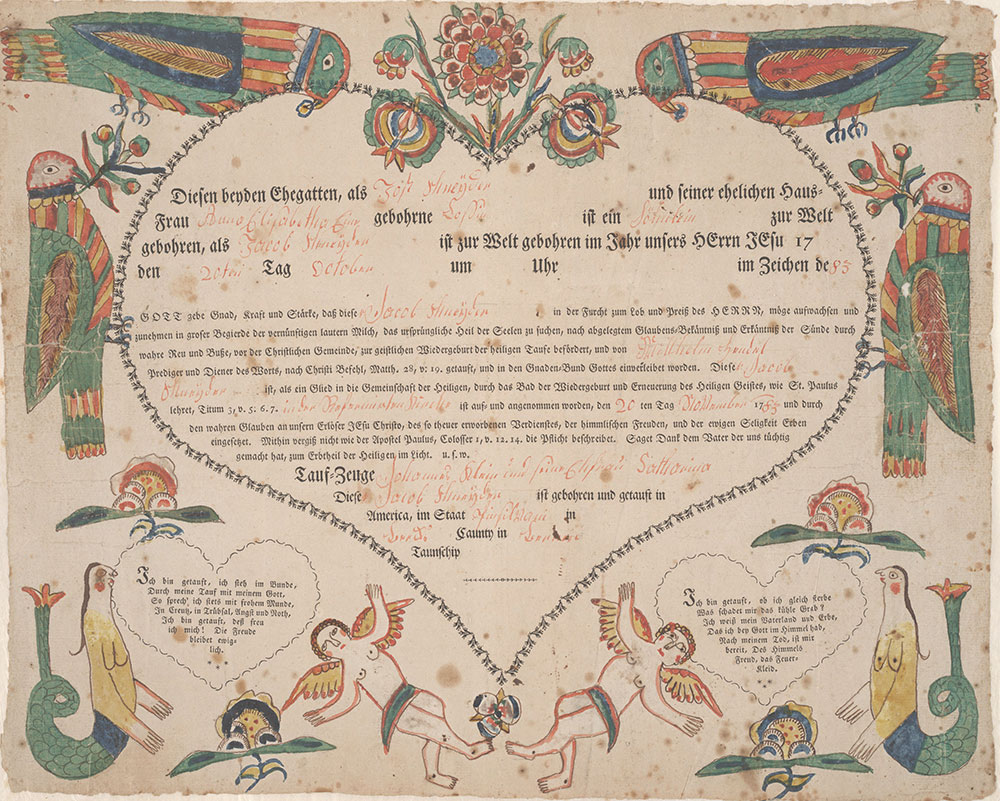 Diesen beyden Ehegatten, als Jost Shneyder und seiner ehelichen Haus-
Frau Anna Elisabetha Eine gebohrne ist ein zur Welt
gebohren, als Jacob Shneyder ist zur Welt gebohren im Jahr unsers HErrn JEsu 17
den 20ten Tag October um Uhr im Zeichen de 83
GOTT gebe Gnad, Kraft und Stärke, daß dieser Jacob Shneyder in der Furcht zum Lob und Preiß des HERRN, möge aufwachsen und
zunehmen in groser Begierde der vernünftigen lautern Milch, das ursprüngliche Heil der Seelen zu suchen, nach abgelegtem Glaubens-Bekäntniß und Erkäntniß der Sünde durch
wahre Reu und Buße, vor der Christlichen Gemeinde, zur geistlichen Wiedergeburt der heiligen Taufe befördert, und von Wilhelm Hendel
Prediger und Diener des Worts, nach Christi Befehl, Matth. 28, v. 19. getauft, und in den Gnaden-Bund Gottes einverleibet worden. Dieser Jacob
Shneyder ist, als ein Glied in die Gemeinschaft der Heiligen, durch das Bad der Wiedergeburt und Erneuerung des Heiligen Geistes, wie St. Paulus
lehret, Titum 3, v. 5. 6. 7. in der Reformirten Kirche ist auf- und angenommen worden, den 20 ten Tag November 1783 und durch
den wahren Glauben an unsern Erlöser JEsu Christo, des so theuer erworbenen Verdienstes, der himmlischen Freuden, und der ewigen Seligkeit Erben
eingesetzet. Mithin vergiß nicht wie der Apostel Paulus, Colosser 1, v. 12. 14. die Pflicht beschreibet. Saget Dank dem Vater der uns tüchtig
gemacht hat, zum Erbtheil der Heiligen im Licht. u. s. w.
Tauf-Zeuge Johannes und seine Ehfrau Catharina
Diese Jacob Shneyder ist gebohren und getauft in
America, im Staat in
Caunty in
Taunschip
Ich bin getauft, ich steh im Bunde,
Durch meine Tauf mit meinem Gott,
So sprech' ich stets mit frohem Munde,
In Creutz, in Trübsal, Angst und Noth,
Ich bin getauft, deß freu
ich mich! Die Freude
bleibet ewig-
lich.
Ich bin getauft, ob ich gleich sterbe
Was schadet mir das kühle Grab?
Ich weiß mein Vaterland und Erbe,
Das ich bey Gott im Himmel hab,
Nach meinem Tod, ist mit
bereit, Des Himmels
Freud, das Feuer-
Kleid.